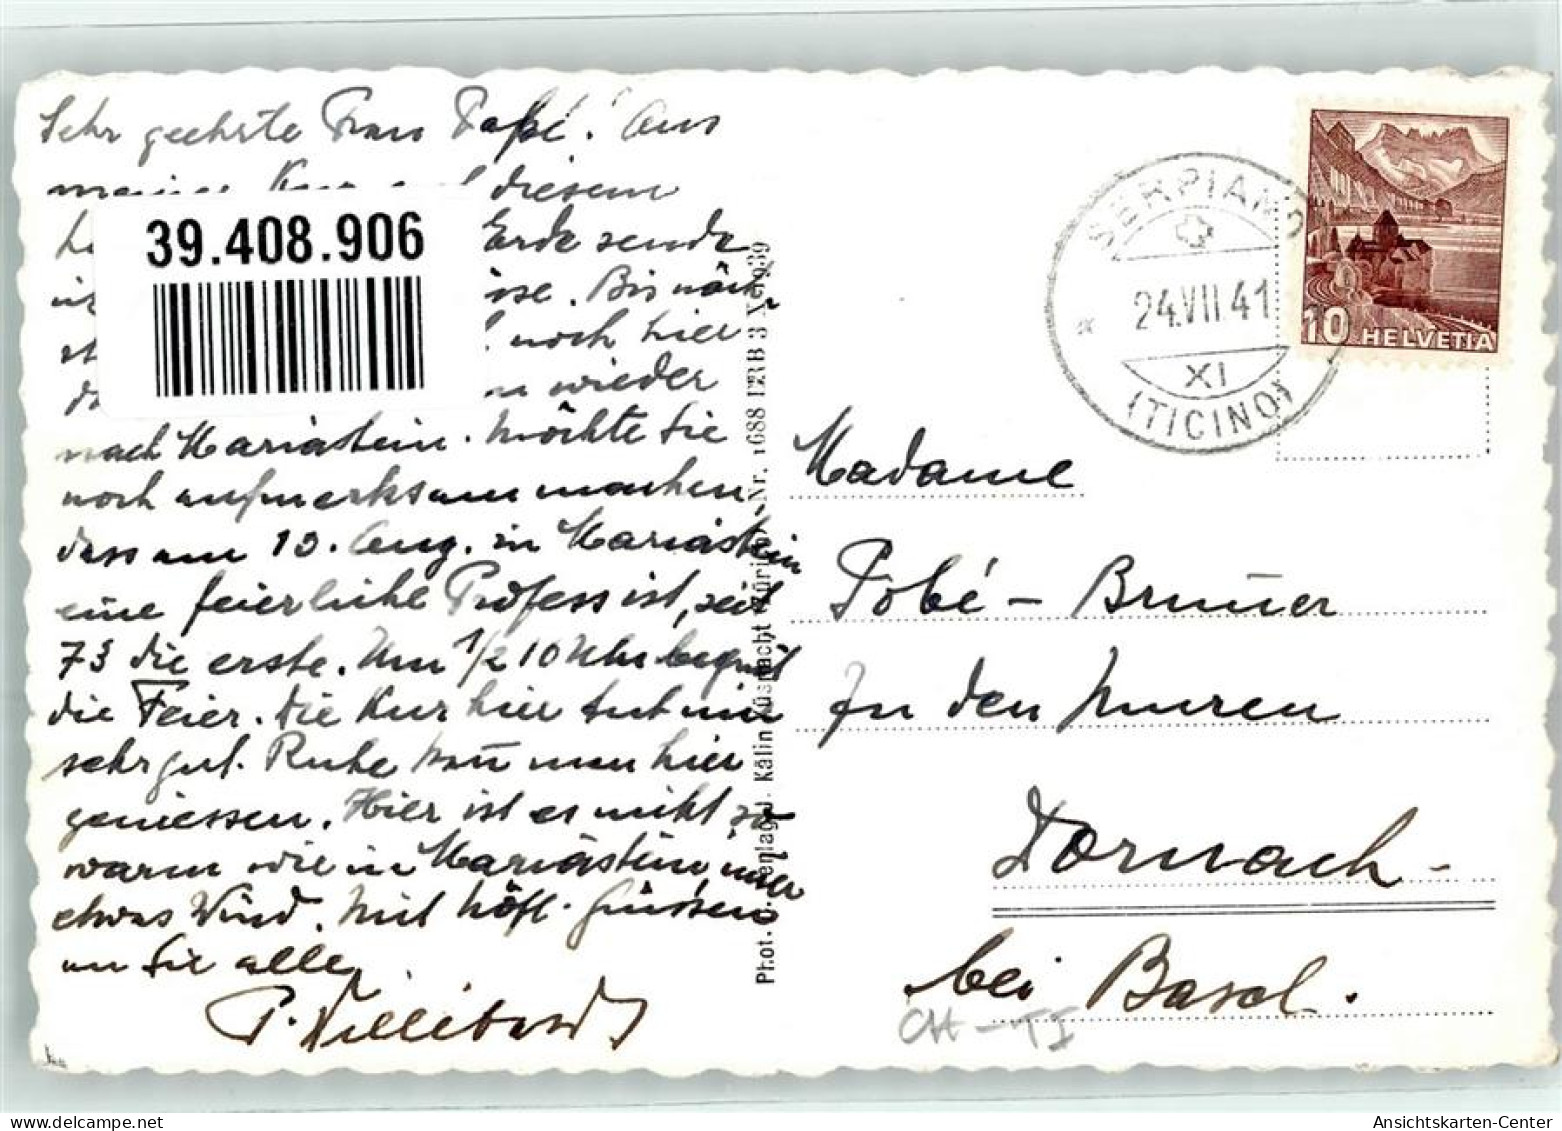 Sehr geehrte Frau Pobé! Aus
meiner Kur auf diesem
Erde sende
ise. Bis näch-
noch hier
wieder
nach Mariastein. Möchte Sie
noch aufmerksam machen
dass am 13. Aug. in Mariastein
eine feierliche Profess ist, seit
73 die erste. Um 1/2 10 Uhr beginnt
die Feier. Die Kur hier tut mir
sehr gut. Ruhe kan̄ man hier
geniessen. Hier ist es nicht so
warm wie in Mariastein, immer
etwas Wind. Mit höfl. Grüssen
an Sie alle
P. Willibald
39.408.906
Phot. Verlag J. Kälin Küsnacht Zürich - Nr. 1688 BRB 3 X 39
SERPIANO
24.VII.41
XI
(TICINO)
10 HELVETIA
Madame
Pobé - Brun̄er
Zu den Muren
Dornach -
bei Basel.
CH - TI
Ansichtskarten-Center